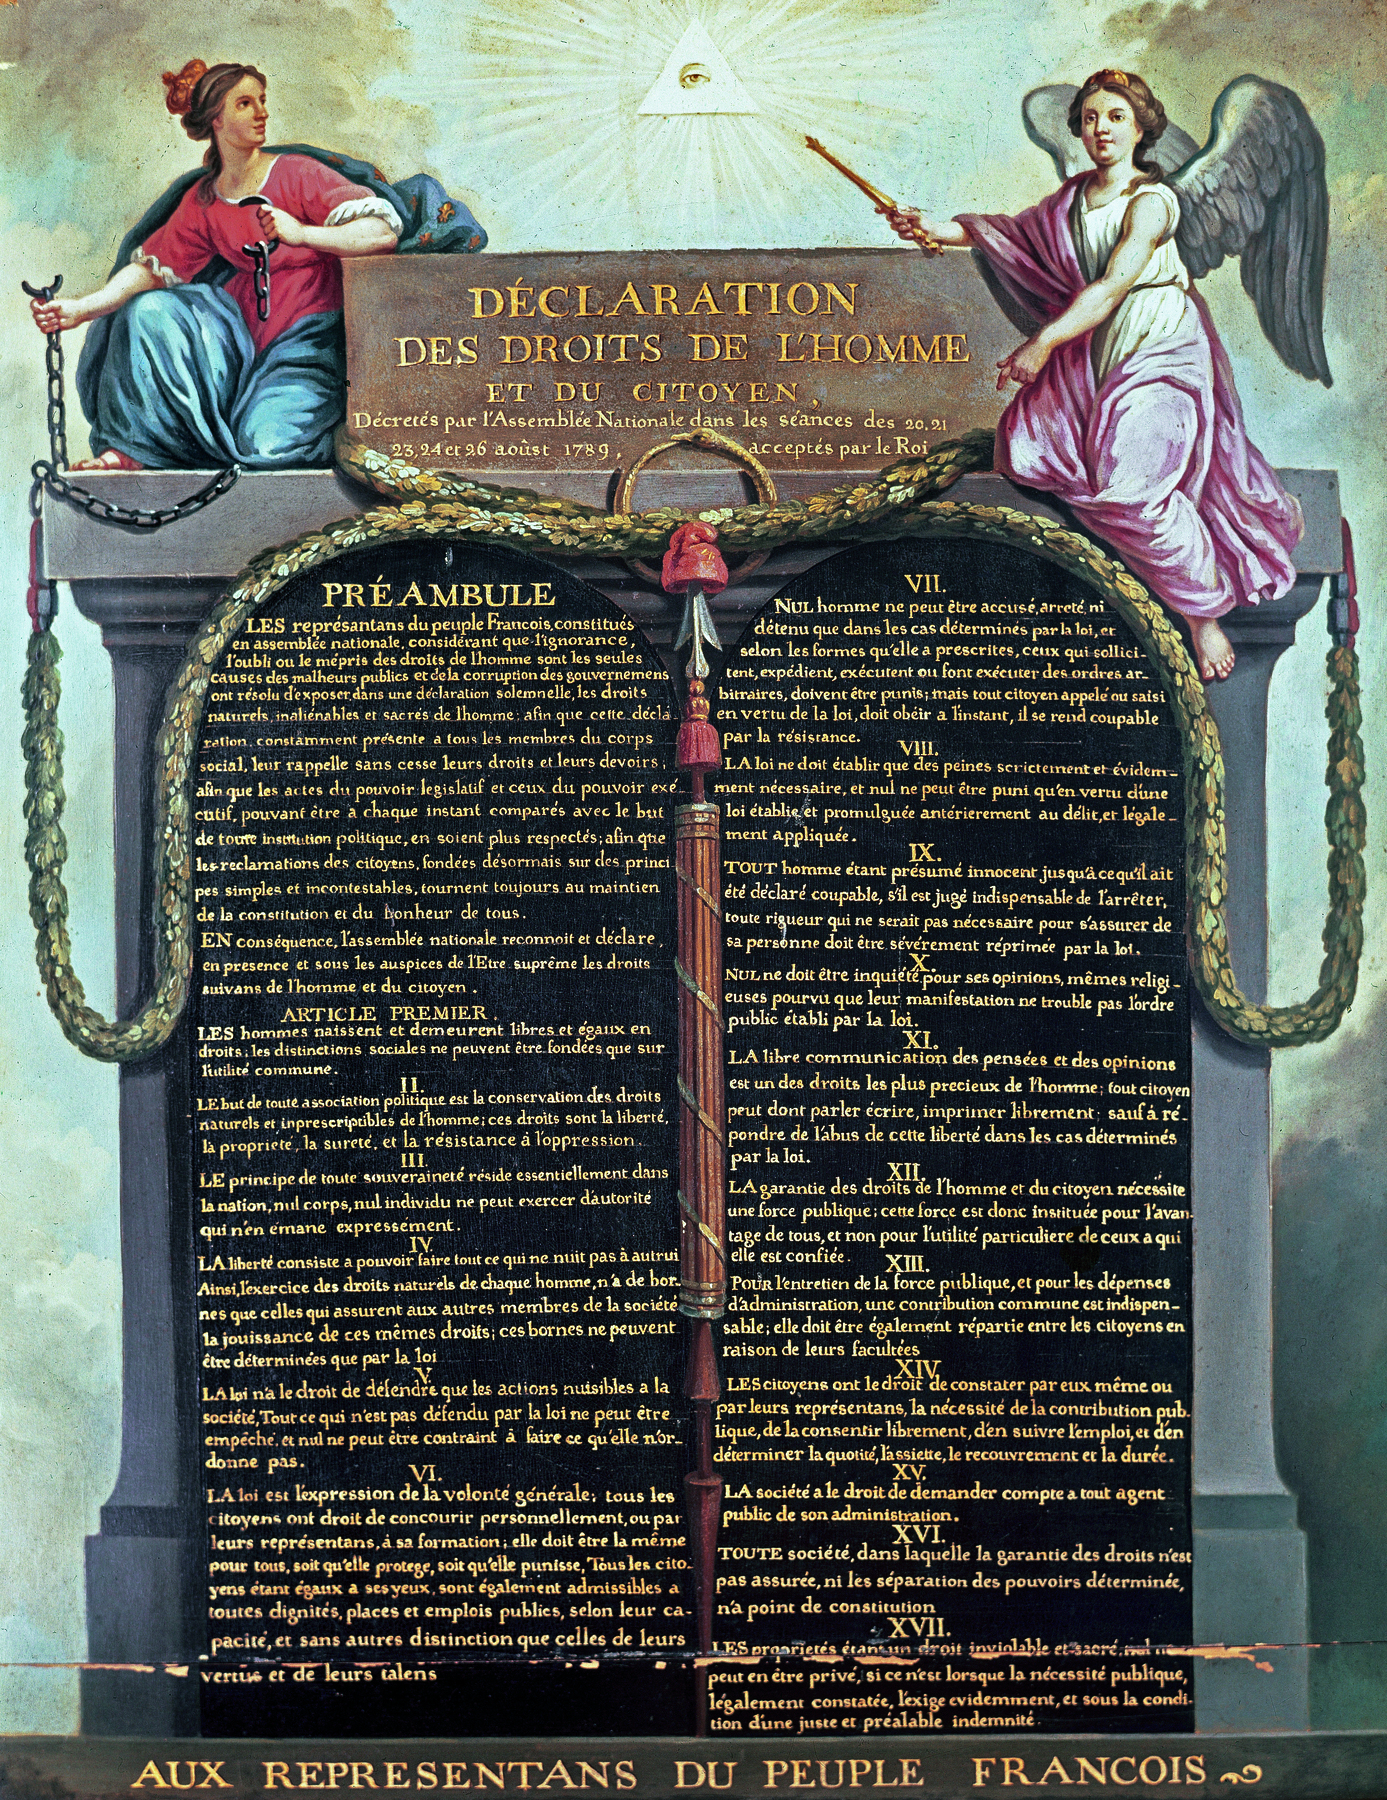 DÉCLARATION
DES DROITS DE L'HOMME
ET DU CITOYEN,
Décretés par l'Assemblée Nationale dans les séances des 20.21
23.24 et 26 aoûst 1789, acceptés par le Roi
PRÉAMBULE
LES représantans du peuple Francois, constitués
en assemblée nationale, considérant que l'ignorance,
l'oubli ou le mépris des droits de lhomme sont les seules
causes des malheurs publics et de la corruption des gouvernemens
ont résolu d'exposer, dans une déclaration solemnelle, les droits
naturels, inaliénables et sacrés de lhomme; afin que cette décla-
ration, constamment présente a tous les membres du corps
social, leur rappelle sans cesse leurs droits et leurs devoirs;
afin que les actes du pouvoir legislatif et ceux du pouvoir exé-
cutif, pouvant être à chaque instant comparés avec le but
de toute institution politique, en soient plus respectés; afin que
les reclamations des citoyens, fondées désormais sur des princi-
pes simples et incontestables, tournent toujours au maintien
de la constitution et du bonheur de tous.
EN conséquence, l'assemblée nationale reconnoit et déclare,
en presence et sous les auspices de l'Etre suprême les droits
suivans de l'homme et du citoyen.
ARTICLE PREMIER.
LES hommes naissent et demeurent libres et égaux en
droits; les distinctions sociales ne peuvent être fondées que sur
l'utilité commune.
II.
LE but de toute association politique est la conservation des droits
naturels et inprescriptibles de l'homme; ces droits sont la liberté,
la propriété, la sureté, et la résistance à l'oppression.
III.
LE principe de toute souveraineté réside essentiellement dans
la nation, nul corps, nul individu ne peut exercer d'autorité
qui n'en émane expressément.
IV.
LA liberté consiste a pouvoir faire tout ce qui ne nuit pas à autrui
Ainsi, l'exercice des droits naturels de chaque homme, n'a de bor-
nes que celles qui assurent aux autres membres de la société
la jouissance de ces mêmes droits; ces bornes ne peuvent
être déterminées que par la loi
V.
LA loi n'a le droit de défendre que les actions nuisibles a la
société, Tout ce qui n'est pas défendu par la loi ne peut être
empêché, et nul ne peut être contraint à faire ce qu'elle n'or-
donne pas.
VI.
LA loi est l'expression de la volonté générale; tous les
citoyens ont droit de concourir personnellement, ou par
leurs représentans, à sa formation; elle doit être la même
pour tous, soit qu'elle protege, soit qu'elle punisse, Tous les cito-
yens étant égaux a ses yeux, sont également admissibles a
toutes dignités, places et emplois publics, selon leur ca-
pacité, et sans autres distinction que celles de leurs
vertus et de leurs talens
VII.
NUL homme ne peut être accusé, arreté, ni
détenu que dans les cas déterminés par la loi, et
selon les formes qu'elle a prescrites, ceux qui sollici-
tent, expédient, exécutent ou font exécuter des ordres ar-
bitraires, doivent être punis; mais tout citoyen appelé ou saisi
en vertu de la loi, doit obéir a l'instant, il se rend coupable
par la résistance.
VIII.
LA loi ne doit établir que des peines scrictement et évidem-
ment nécessaire, et nul ne peut être puni qu'en vertu d'une
loi établie et promulguée antérierement au délit, et légale-
ment appliquée.
IX.
TOUT homme étant présumé innocent jusqu'à ce qu'il ait
été déclaré coupable, s'il est jugé indispensable de l'arrêter,
toute rigueur qui ne serait pas nécessaire pour s'assurer de
sa personne doit être sévérement réprimée par la loi.
X.
NUL ne doit être inquiété pour ses opinions, mêmes religi-
euses pourvu que leur manifestation ne trouble pas l'ordre
public établi par la loi.
XI.
LA libre communication des pensées et des opinions
est un des droits les plus precieux de l'homme; tout citoyen
peut dont parler écrire, imprimer librement; sauf à ré-
pondre de l'abus de cette liberté dans les cas déterminés
par la loi.
XII.
LA garantie des droits de l'homme et du citoyen nécessite
une force publique; cette force est donc instituée pour l'avan-
tage de tous, et non pour l'utilité particuliere de ceux a qui
elle est confiée.
XIII.
POUR l'entretien de la force publique, et pour les dépenses
d'administration, une contribution commune est indispen-
sable; elle doit être également répartie entre les citoyens en
raison de leurs facultées
XIV.
LES citoyens ont le droit de constater par eux même ou
par leurs représentans, la nécessité de la contribution pub-
lique, de la consentir librement, d'en suivre l'emploi, et d'en
déterminer la quotité, l'assiette, le recouvrement et la durée.
XV.
LA société a le droit de demander compte a tout agent
public de son administration.
XVI.
TOUTE société, dans laquelle la garantie des droits n'est
pas assurée, ni les séparation des pouvoirs déterminée,
n'a point de constitution
XVII.
LES proprietés étant un droit inviolable et sacré, nul ne
peut en être privé, si ce n'est lorsque la nécessité publique,
légalement constatée, l'exige evidemment, et sous la condi-
tion d'une juste et préalable indemnité.
AUX REPRESENTANS DU PEUPLE FRANCOIS